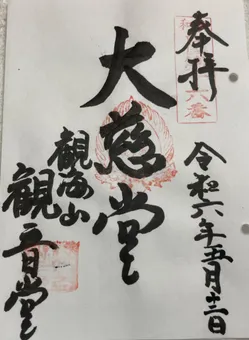 奉拝
八番
令和六年五月十二日
大慈堂
観海山
観音堂